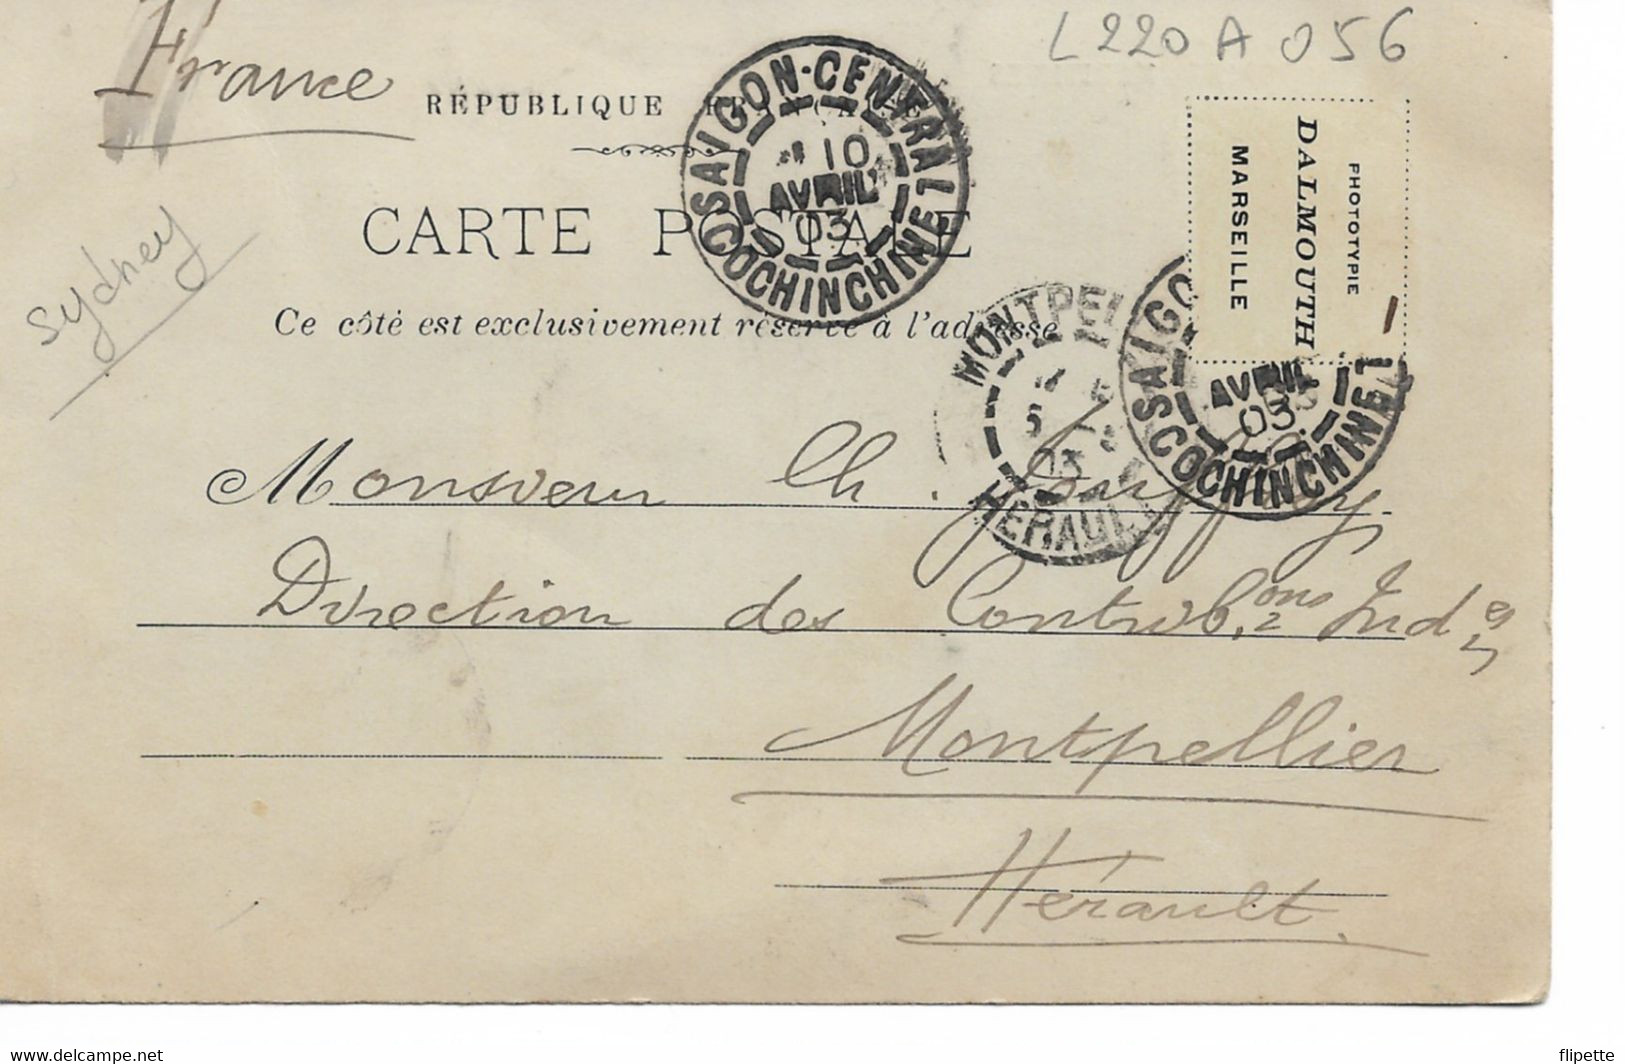 L220A 056
France
RÉPUBLIQUE FRANÇAISE
SAIGON-CENTRAL
10
AVRIL
03
COCHINCHINE
PHOTOTYPIE
DALMOUTH
MARSEILLE
CARTE POSTALE
Sydney
Ce côté est exclusivement réservé à l'adresse
MONTPEL
03
HERAULT
SAIGO
AVRIL
03
COCHINCHINE
Monsieur Ch.
Direction des Contrib.ons Ind.es
Montpellier
Hérault.
https://www.delcampe.net
flipette